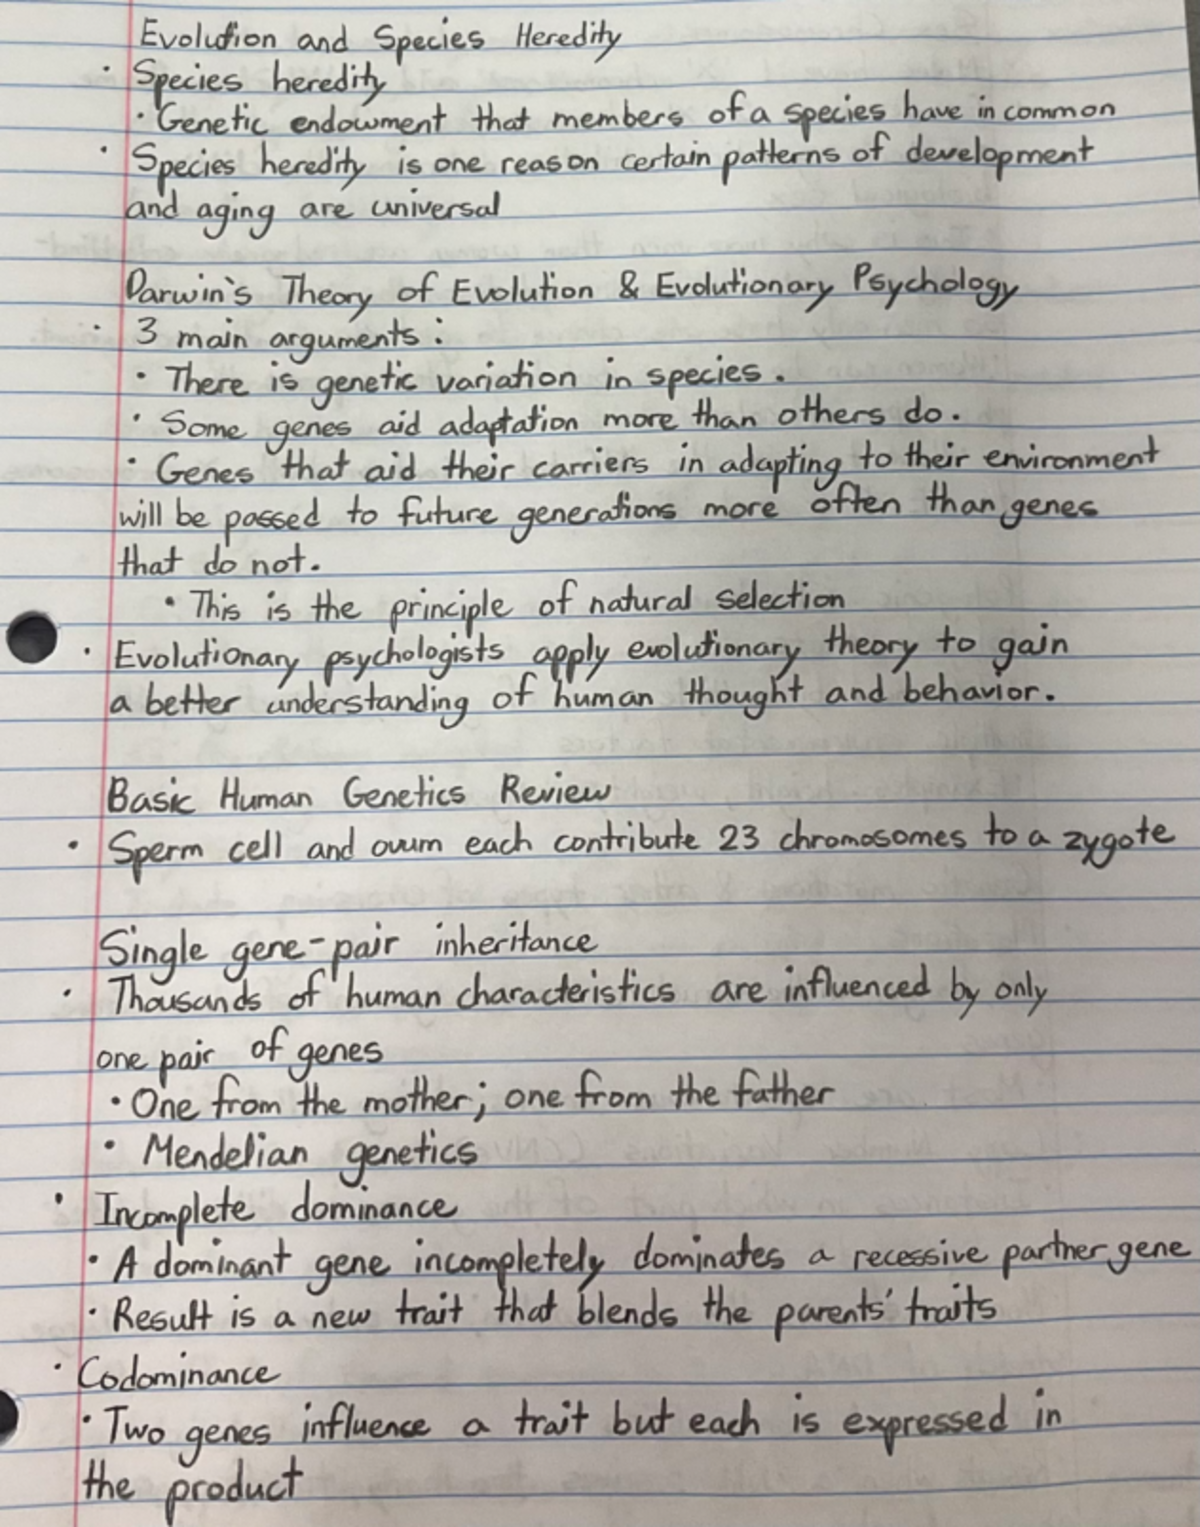 Evolution and Species Heredity
• Species heredity
• Genetic endowment that members of a species have in common
• Species heredity is one reason certain patterns of development
and aging are universal
Darwin's Theory of Evolution & Evolutionary Psychology
• 3 main arguments:
• There is genetic variation in species.
• Some genes aid adaptation more than others do.
• Genes that aid their carriers in adapting to their environment
will be passed to future generations more often than genes
that do not.
• This is the principle of natural selection
• Evolutionary psychologists apply evolutionary theory to gain
a better understanding of human thought and behavior.
Basic Human Genetics Review
• Sperm cell and ovum each contribute 23 chromosomes to a zygote
Single gene-pair inheritance
• Thousands of human characteristics are influenced by only
one pair of genes
• One from the mother; one from the father
• Mendelian genetics
• Incomplete dominance
• A dominant gene incompletely dominates a recessive partner gene
• Result is a new trait that blends the parents' traits
• Codominance
• Two genes influence a trait but each is expressed in
the product